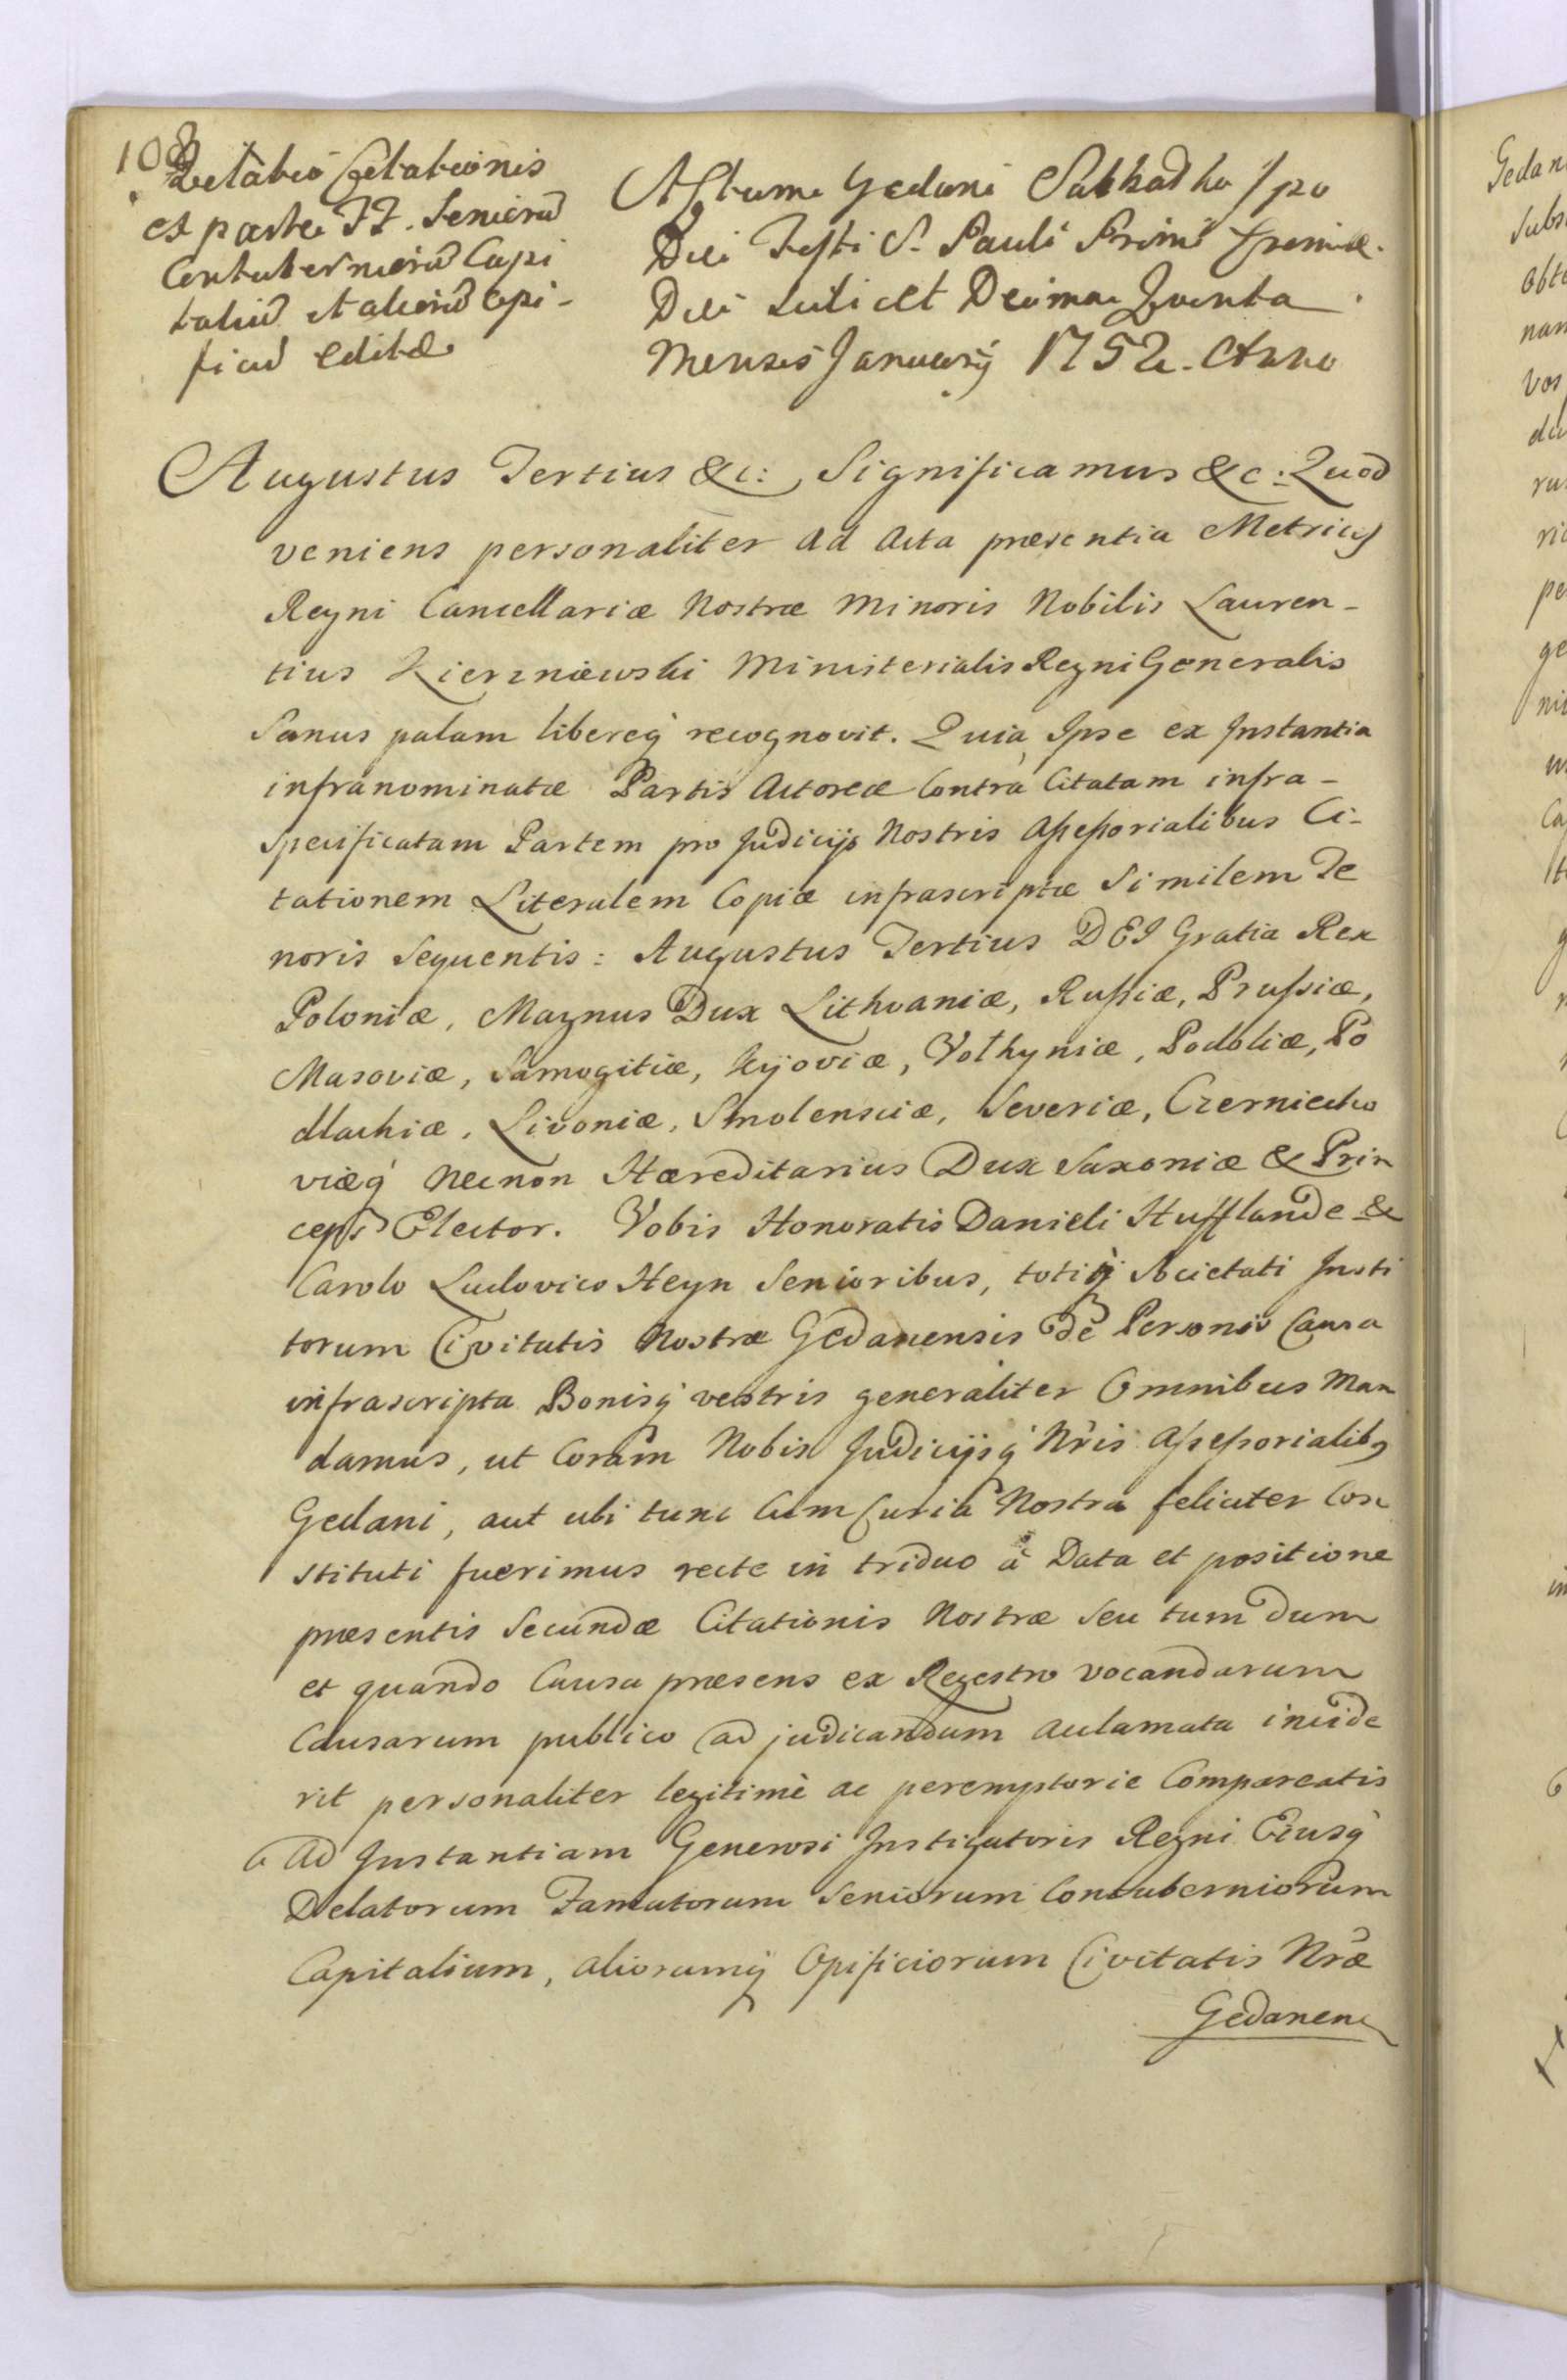 108
Relatio Citationis
ex parte FF. Senioru
Contuberniorũ Capi
taliũ et aliorũ Opi-
ficiũ editæ
Actum Gedani Sabbatho Ipo
Die Festi S. Pauli Primi Eremitæ.
Die scilicet Decima Quinta
Mensis Januarÿ 1752. Anno
Augustus Tertius &c: Significamus &c: Quod
veniens personaliter ad Acta præsentia Metrices
Regni Cancellariæ Nostræ Minoris Nobilis Lauren-
tius Kierzniewski Ministerialis Regni Generalis
Sanus palam libereq́ recognovit. Quia Ipse ex Instantia
infranominatæ Partis Actoreæ Contra Citatam infra-
specificatam Partem pro Judicijs Nostris Assessorialibus Ci-
tationem Literalem Copiæ infrascriptæ Similem Te
noris Sequentis: Augustus Tertius DEI Gratia Rex
Poloniæ, Magnus Dux Lithvaniæ, Russiæ, Prussiæ,
Masoviæ, Samogitiæ, Kijoviæ, Volhyniæ, Podoliæ, Po
dlachiæ, Livoniæ, Smolensciæ, Severiæ, Czerniecho
viæq́ Necnon Hæreditarius Dux Saxoniæ & Prin
ceps Elector. Vobis Honoratis Danieli Hufflande &
Carolo Ludovico Heyn Senioribus, totiq́ Societati Insti
torum Civitatis Nostræ Gedanensis de Personis Causa
infrascripta Bonisq́ vestris generaliter Omnibus Man
damus, ut Coram Nobis Judicijsq́ Nr̃is Assessorialibꝫ
Gedani, aut ubi tunc Cum Curia Nostra feliciter Con
stituti fuerimus recte in triduo à Data et positione
præsentis Secundæ Citationis Nostræ seu tum dum
et quando Causa præsens ex Regestro vocandarum
Causarum publico ad judicandum acclamata incide
rit personaliter legitimè ac peremptorie Compareatis
Ad Instantiam Generosi Instigatoris Regni Eiusq́
Delatorum Famatorum Seniorum Contuberniorum
Capitalium, aliorumq́ Opificiorum Civitatis Nr̃æ
Gedanen